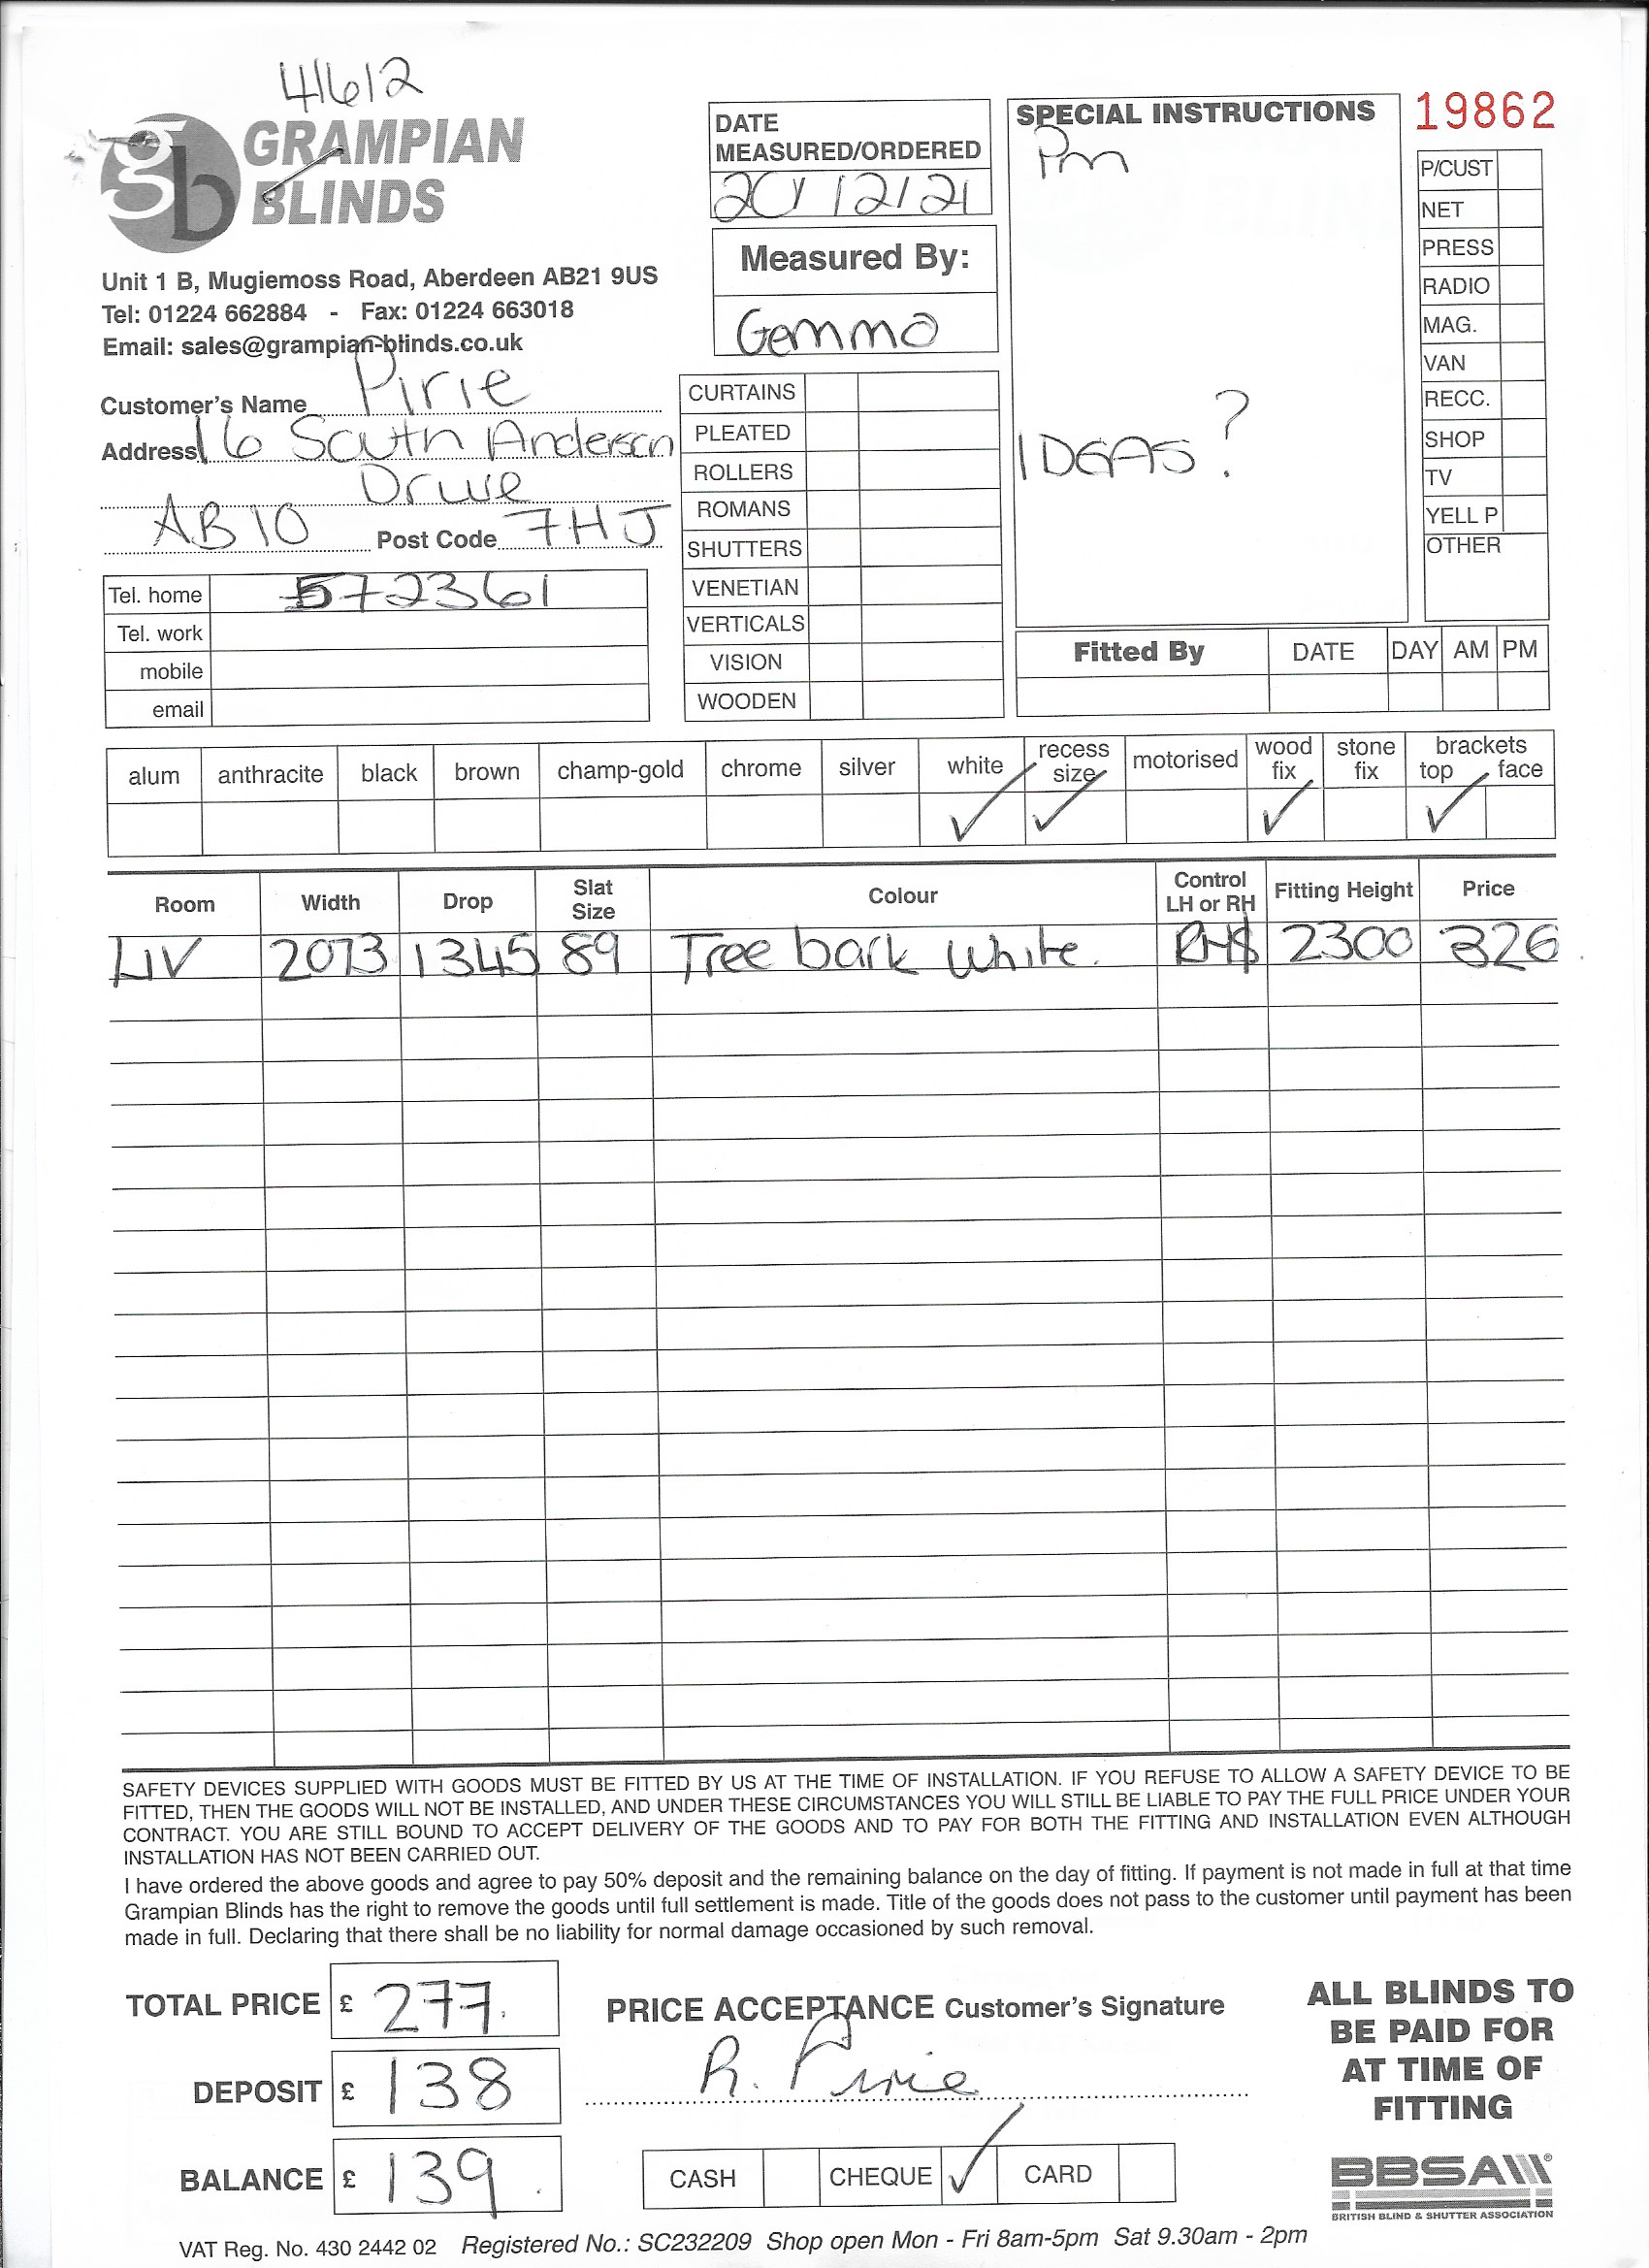 41612
gb GRAMPIAN
BLINDS
Unit 1 B, Mugiemoss Road, Aberdeen AB21 9US
Tel: 01224 662884 - Fax: 01224 663018
Email: sales@grampian-blinds.co.uk
Customer's Name Pirie
Address 16 South Anderson
Drive
AB10 Post Code 7HJ
Tel. home 572361
Tel. work
mobile
email
DATE
MEASURED/ORDERED
20/12/21
Measured By:
Gemma
CURTAINS
PLEATED
ROLLERS
ROMANS
SHUTTERS
VENETIAN
VERTICALS
VISION
WOODEN
SPECIAL INSTRUCTIONS
Pm
IDEAS?
19862
P/CUST
NET
PRESS
RADIO
MAG.
VAN
RECC.
SHOP
TV
YELL P
OTHER
Fitted By DATE DAY AM PM
alum anthracite black brown champ-gold chrome silver white recess size motorised wood fix stone fix brackets top face
✓ ✓ ✓ ✓
Room Width Drop Slat Size Colour Control LH or RH Fitting Height Price
LIV 2073 1345 89 Tree bark white. RHS 2300 326
SAFETY DEVICES SUPPLIED WITH GOODS MUST BE FITTED BY US AT THE TIME OF INSTALLATION. IF YOU REFUSE TO ALLOW A SAFETY DEVICE TO BE
FITTED, THEN THE GOODS WILL NOT BE INSTALLED, AND UNDER THESE CIRCUMSTANCES YOU WILL STILL BE LIABLE TO PAY THE FULL PRICE UNDER YOUR
CONTRACT. YOU ARE STILL BOUND TO ACCEPT DELIVERY OF THE GOODS AND TO PAY FOR BOTH THE FITTING AND INSTALLATION EVEN ALTHOUGH
INSTALLATION HAS NOT BEEN CARRIED OUT.
I have ordered the above goods and agree to pay 50% deposit and the remaining balance on the day of fitting. If payment is not made in full at that time
Grampian Blinds has the right to remove the goods until full settlement is made. Title of the goods does not pass to the customer until payment has been
made in full. Declaring that there shall be no liability for normal damage occasioned by such removal.
TOTAL PRICE £ 277.
DEPOSIT £ 138
BALANCE £ 139.
PRICE ACCEPTANCE Customer's Signature
R. Pirie
CASH CHEQUE ✓ CARD
ALL BLINDS TO
BE PAID FOR
AT TIME OF
FITTING
BBSA®
BRITISH BLIND & SHUTTER ASSOCIATION
VAT Reg. No. 430 2442 02 Registered No.: SC232209 Shop open Mon - Fri 8am-5pm Sat 9.30am - 2pm